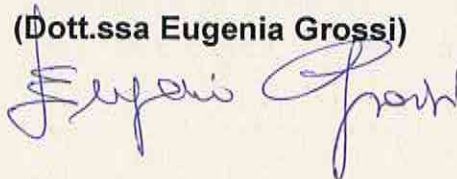 (Dott.ssa Eugenia Grossi)
Eugenia Grossi